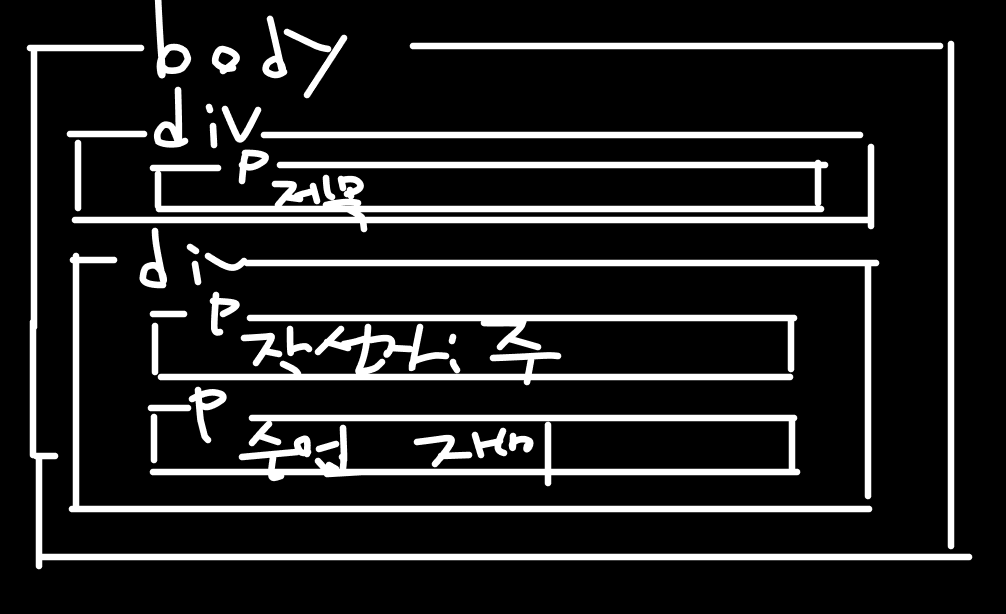 body
div
p
제목
div
p
작성자: 주
p
수업 재미